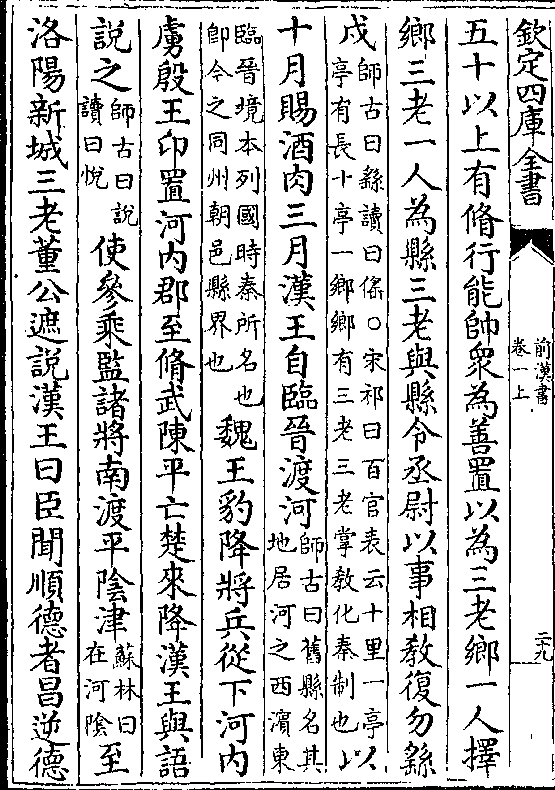 欽定四庫全書
前漢書
卷一上
二十九
五十以上有脩行能帥衆為善置以為三老鄉一人擇
鄉三老一人為縣三老與縣令丞尉以事相教復勿繇
戍師古曰繇讀曰傜○宋祁曰百官表云十里一亭亭有長十亭一鄉鄉有三老三老掌教化秦制也以
十月賜酒肉三月漢王自臨晉渡河師古曰舊縣名其地居河之西濵東
臨晉境本列國時秦所名也即今之同州朝邑縣界也魏王豹降將兵從下河内
虜殷王卬置河内郡至脩武陳平亡楚來降漢王與語
說之師古曰說讀曰悅使參乘監諸將南渡平隂津蘇林曰在河隂至
洛陽新城三老董公遮說漢王曰臣聞順德者昌逆德